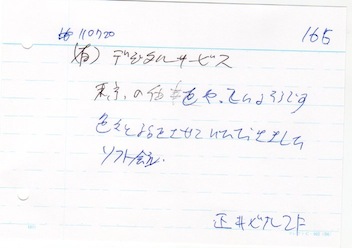 110720 165
(有) デジタルサービス
東京の仕事をやっているそうです
色々とさせていただきました
ソフト会社
正井ビル2F